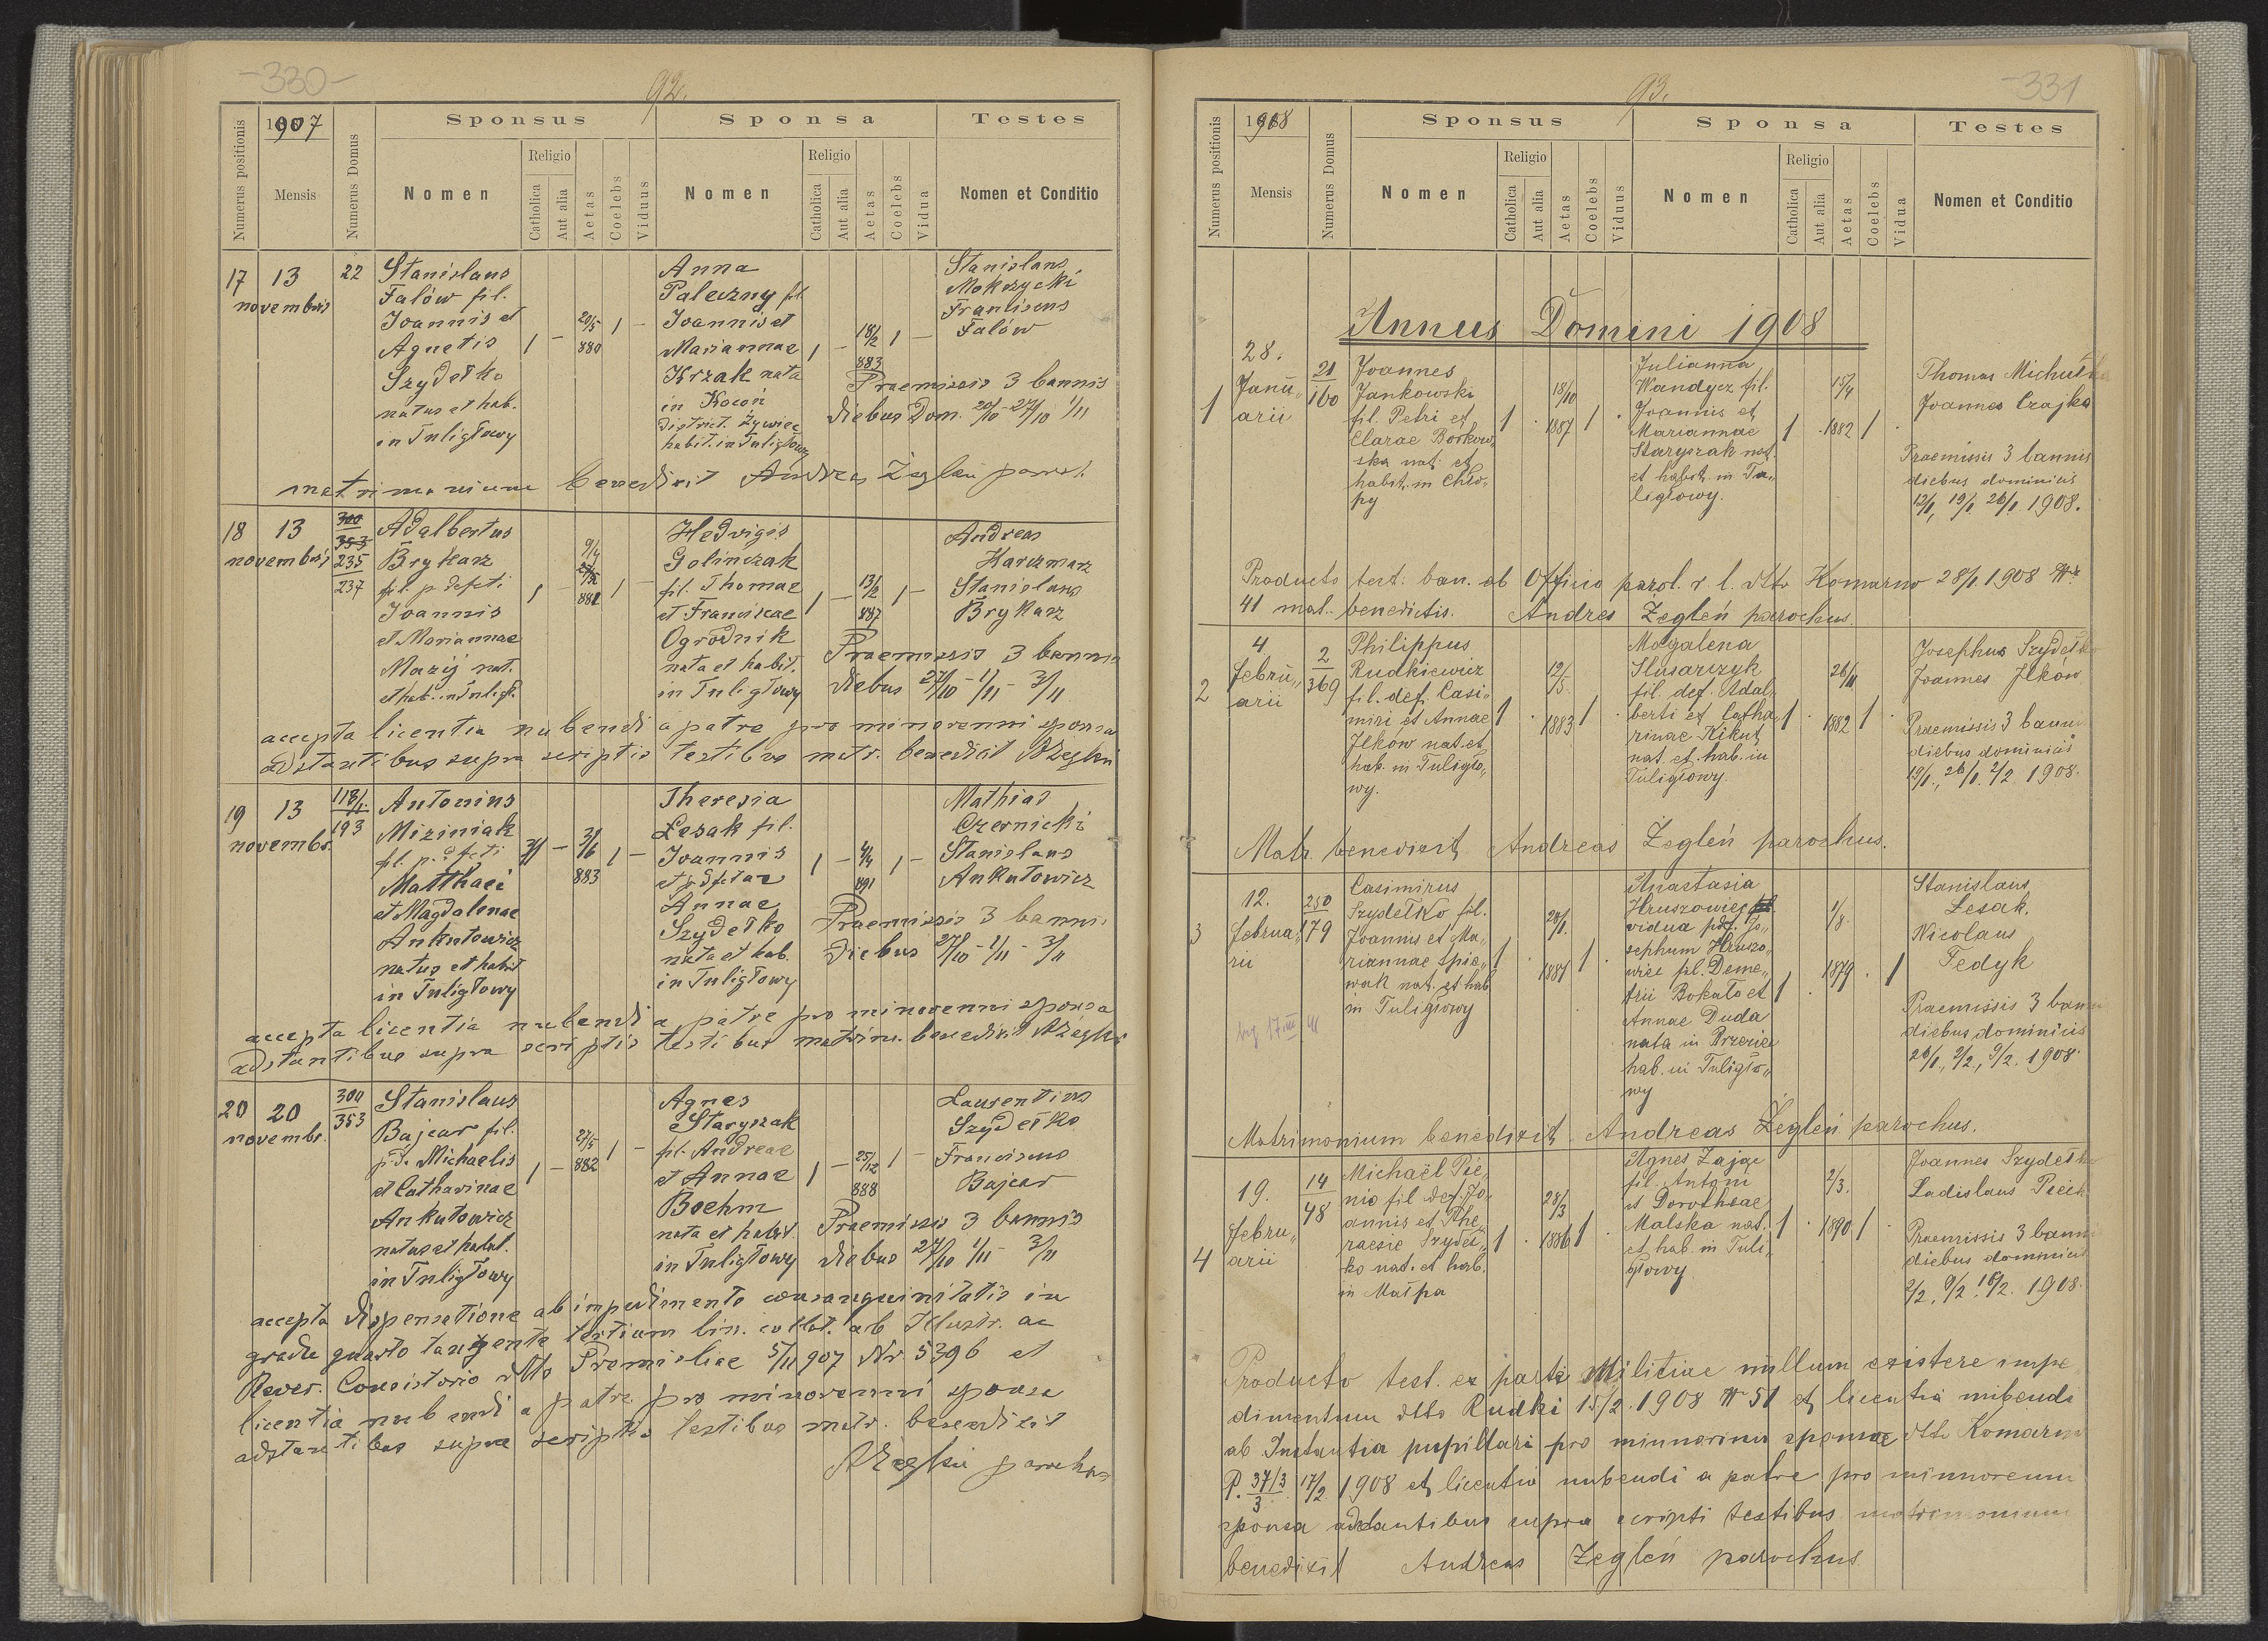 -330-
92.
Numerus positionis
1907
Mensis
Numerus Domus
Sponsus
Nomen
Religio
Catholica
Aut alia
Aetas
Coelebs
Viduus
Sponsa
Nomen
Religio
Catholica
Aut alia
Aetas
Coelebs
Vidua
Testes
Nomen et Conditio
17 13 novembris 22
Stanislaus
Falów fil.
Joannis et
Agnetis
Szydełko
natus et hab.
in Tuligłowy
1 — 20/5 880 1 —
Anna
Paleczny fil.
Joannis et
Mariannae
Krzak nata
in Kocoń
district. Żywiec
habit. in Tuligłowy
1 — 18/2 883 1 —
Stanislaus
Mokrzycki
Franciscus
Falów
Praemissis 3 bannis
diebus Dom. 20/10 - 27/10 1/11
matrimonium benedixit Andreas Żegleń paroch.
18 13 novembris 300 353 235 237
Adalbertus
Brykarz
fil. p. defcti.
Joannis
et Mariannae
Mazij nat.
et hab. in Tuligł.
1 — 9/4 881 1 —
Hedvigis
Golinczak
fil. Thomae
et Franciscae
Ogrodnik
nata et habit.
in Tuligłowy
1 — 13/2 887 1 —
Andreas
Karczmarz
Stanislaus
Brykarz
Praemissis 3 bannis
diebus 27/10 - 1/11 - 3/11
accepta licentia nubendi a patre pro minorenni sponsa
adstantibus supra scriptis testibus matr. benedixit AŻegleń
19 13 novembr. 118/1. 193
Antonius
Miziniak
fil. p. defcti
Matthaei
et Magdalenae
Ankutowicz
natus et habit
in Tuligłowy
— 3/6 883 1 —
Theresia
Lesak fil.
Joannis
et p. defctae
Annae
Szydełko
nata et hab.
in Tuligłowy
1 — 4/4 891 1 —
Mathias
Czernicki
Stanislaus
Ankutowicz
Praemissis 3 bannis
diebus 27/10 - 1/11 - 3/11
accepta licentia nubendi a patre pro minorenni sponsa
adstantibus supra scriptis testibus matrim. benedixit AŻegleń
20 20 novembr. 300 353
Stanislaus
Bajcar fil.
p. d. Michaelis
et Catharinae
Ankutowicz
natus et habit.
in Tuligłowy
1 — 27/5 882 1 —
Agnes
Staryszak
fil. Andreae
et Annae
Boehm
nata et habit.
in Tuligłowy
1 — 25/12 888 1 —
Laurentius
Szydełko
Franciscus
Bajcar
Praemissis 3 bannis
diebus 27/10 1/11 - 3/11
accepta dispensatione ab impedimento consanguinitatis in
gradu quarto tangente tertium lin. collat. ab Illustr. ac
Rever. Consistorio dtto Premisliae 5/11 907 Nr 5396 et
licentia nubendi a patre pro minorenni sponsa
adstantibus supra scriptis testibus matr. benedixit
AŻegleń parochus
93.
-331
Numerus positionis
1908
Mensis
Numerus Domus
Sponsus
Nomen
Religio
Catholica
Aut alia
Aetas
Coelebs
Viduus
Sponsa
Nomen
Religio
Catholica
Aut alia
Aetas
Coelebs
Vidua
Testes
Nomen et Conditio
Annus Domini 1908
1 28. Janu„ arii 21 160
Joannes
Jankowski
fil. Petri et
Clarae Borkow„
ska nat. et
habit. in Chło„
py
1 . 18/10 1887 1 .
Julianna
Wandycz fil.
Joannis et
Mariannae
Staryszak nat.
et habit. in Tu„
ligłowy.
1 . 15/4 1882 1 .
Thomas Michułka
Joannes Czajka
Praemissis 3 bannis
diebus dominicis
12/1, 19/1. 26/1. 1908.
Producto test. ban. ab Officio paroh. r. l. dtto Komarno 28/1 1908 Nr
41 mat. benedictis. Andreas Żegleń parochus.
2 4 febru„ arii 2 369
Philippus
Rudkiewicz
fil. def. Casi„
miri et Annae
Jlków nat. et
hab. in Tuligło„
wy.
1 . 12/5. 1883 1 .
Magalena
Slusarczyk
fil. def. Adal„
berti et Catha„
rinae Kikut
nat. et. hab. in
Tuligłowy.
1 . 26/11 1882 1 .
Josephus Szydełko
Joannes Jlków
Praemissis 3 bannis
diebus dominicis
19/1., 26/1. 2/2. 1908.
Matr. benedixit Andreas Żegleń parochus.
3 12. februa„ rii 250 179
Casimirus
Szydełko fil.
Joannis et Ma„
riannae Spie„
wak nat. et hab.
in Tuligłowy
1 . 28/1. 1881 1 .
Anastasia
Hruszowiec
vidua p. def. Jo„
sephum Hruszo„
wiec fil. Deme„
trii Bokało et
Annae Duda
nata in
hab. in Tuligło„
wy
1 . 1/8. 1879 . 1
Stanislaus
Lesak.
Nicolaus
Fedyk
Praemissis 3 bannis
diebus dominicis
26/1., 2/2., 9/2. 1908.
Matrimonium benedixit Andreas Żegleń parochus.
4 19. febru„ arii 14 48
Michaël Pie„
nio fil def. Jo„
annis et The„
raesie Szydeł„
ko nat. et hab.
in Małpa
1 . 28/3 1886 1
Agnes Zając
fil. Antoni
et Dorotheae
Malska nat.
et hab. in Tuli„
głowy
1 . 2/3. 1890 1 .
Joannes Szydełko
Ladislaus Pieich
Praemissis 3 bannis
diebus dominicis
2/2, 9/2. 16/2. 1908.
Producto test. ex parte Militiae nullum existere impe„
dimentum dtto Rudki 15/2. 1908 Nr 51 et licentia nubendi
ab Instantia pupillari pro minnorinu sponsae dtto Komarno
P. 37/3 3 17/2 1908 et licentia nubendi a patre pro minnorenni
sponsa adstantibus supra scripti testibus matrimonium
benedixit Andreas Żegleń parochus